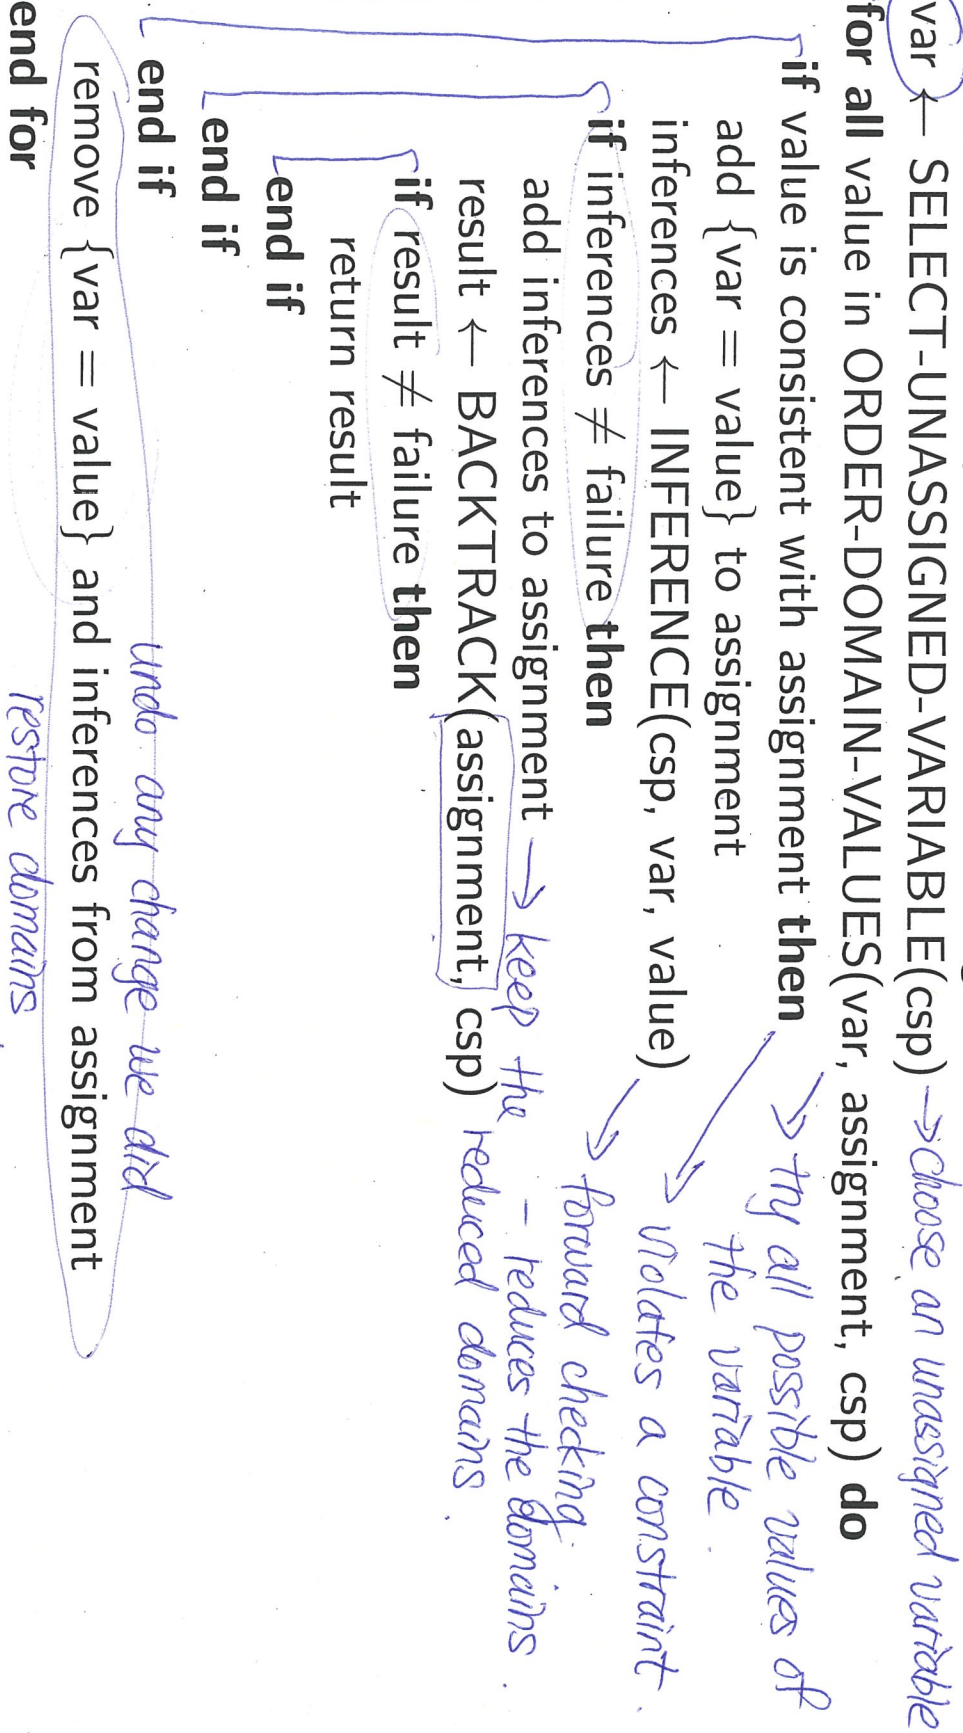 var ← SELECT-UNASSIGNED-VARIABLE(csp) → choose an unassigned variable
for all value in ORDER-DOMAIN-VALUES(var, assignment, csp) do
→ try all possible values of
the variable.
if value is consistent with assignment then
→ violates a constraint.
add {var = value} to assignment
inferences ← INFERENCE(csp, var, value)
→ forward checking.
- reduces the domains.
if inferences ≠ failure then
add inferences to assignment → keep the
reduced domains.
result ← BACKTRACK(assignment, csp)
if result ≠ failure then
return result
end if
end if
end if
undo any change we did
remove {var = value} and inferences from assignment
restore domains.
end for